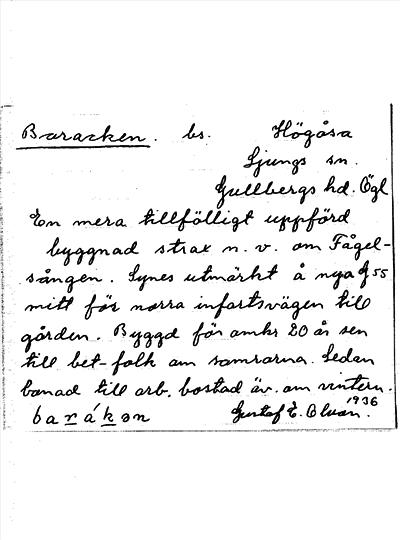 Baracken. bs. Högåsa
Ljungs sn.
Gullbergs hd. Ögl
En mera tillfälligt uppförd
byggnad strax n. v. om Fågel-
sången. Synes utmärkt å nya G 55
mitt för norra infartsvägen till
gården. Byggd för omkr 20 år sen
till bet-folk om somrarna. Sedan
bonad till arb. bostad äv. om vintern.
barákən Gustaf E. Olsson. 1936